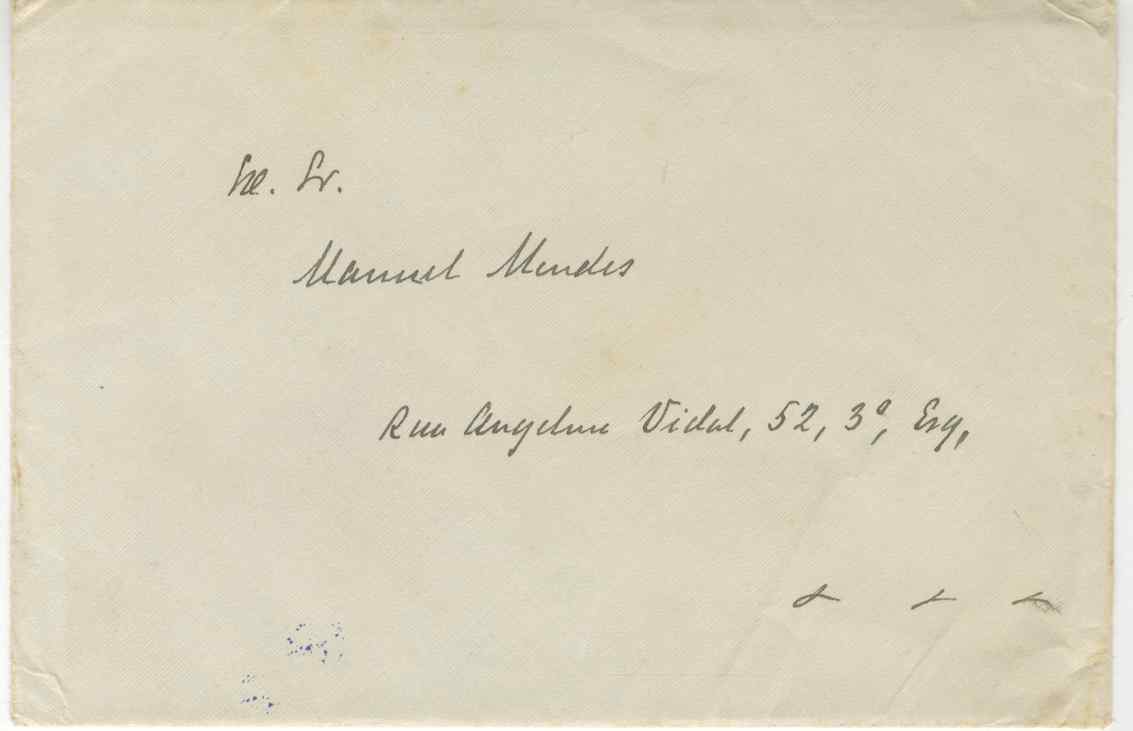 Ex. Sr.
Manuel Mendes
Rua Angelina Vidal, 52, 3º, Esq,